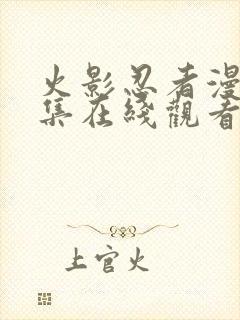 火影忍者漫
集在綫觀看
上官火